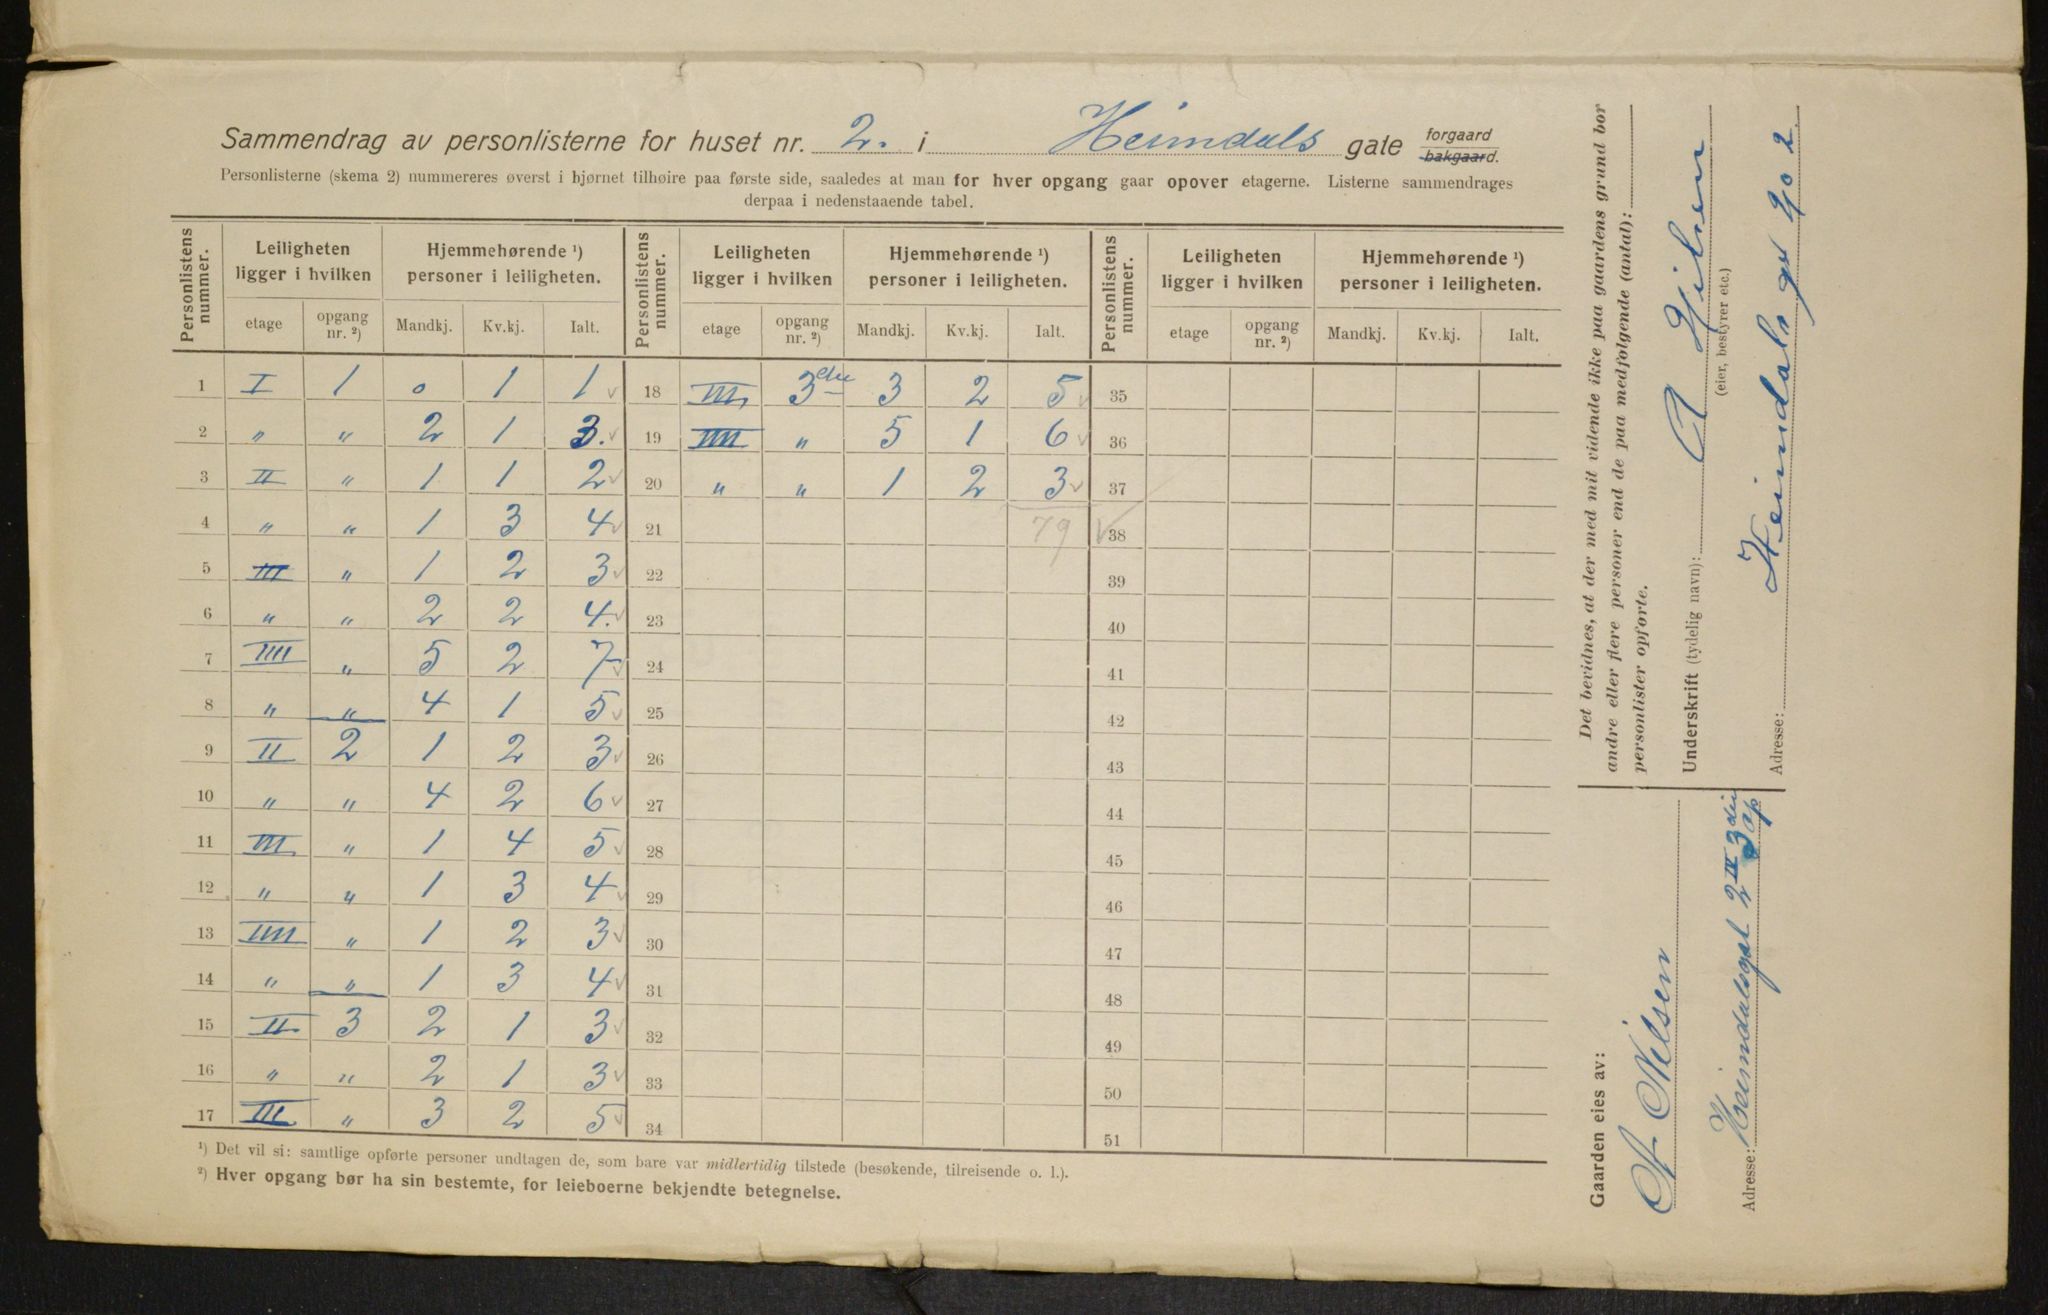 Sammendrag av personlisterne for huset nr. 2. i Heimdals gate forgaard bakgaard.
Personlisterne (skema 2) nummereres øverst i hjørnet tilhøire paa første side, saaledes at man for hver opgang gaar opover etagerne. Listerne sammendrages
derpaa i nedenstaaende tabel.
Personlistens nummer. Leiligheten ligger i hvilken Hjemmehørende ¹) personer i leiligheten. Personlistens nummer. Leiligheten ligger i hvilken Hjemmehørende ¹) personer i leiligheten. Personlistens nummer. Leiligheten ligger i hvilken Hjemmehørende ¹) personer i leiligheten.
etage opgang nr. ²) Mandkj. Kv.kj. Ialt. etage opgang nr. ²) Mandkj. Kv.kj. Ialt. etage opgang nr. ²) Mandkj. Kv.kj. Ialt.
1 I 1 0 1 1 18 III 3 3 2 5 35
2 " " 2 1 3. 19 IIII " 5 1 6 36
3 II " 1 1 2 20 " " 1 2 3 37
4 " " 1 3 4 21 79 38
5 III " 1 2 3 22 39
6 " " 2 2 4. 23 40
7 IIII " 5 2 7 24 41
8 " " 4 1 5 25 42
9 II 2 1 2 3 26 43
10 " " 4 2 6 27 44
11 III " 1 4 5 28 45
12 " " 1 3 4 29 46
13 IIII " 1 2 3 30 47
14 " " 1 3 4 31 48
15 II 3 2 1 3 32 49
16 " " 2 1 3 33 50
17 III " 3 2 5 34 51
¹) Det vil si: samtlige opførte personer undtagen de, som bare var midlertidig tilstede (besøkende, tilreisende o. l.).
²) Hver opgang bør ha sin bestemte, for leieboerne bekjendte betegnelse.
Det bevidnes, at der med mit vidende ikke paa gaardens grund bor
andre eller flere personer end de paa medfølgende (antal):
personlister opførte.
Underskrift (tydelig navn):
(eier, bestyrer etc.)
Adresse: Heimdals gt 2
Gaarden eies av:
A. Nilsen
Adresse: Heimdalsgt 2 IV 3 op